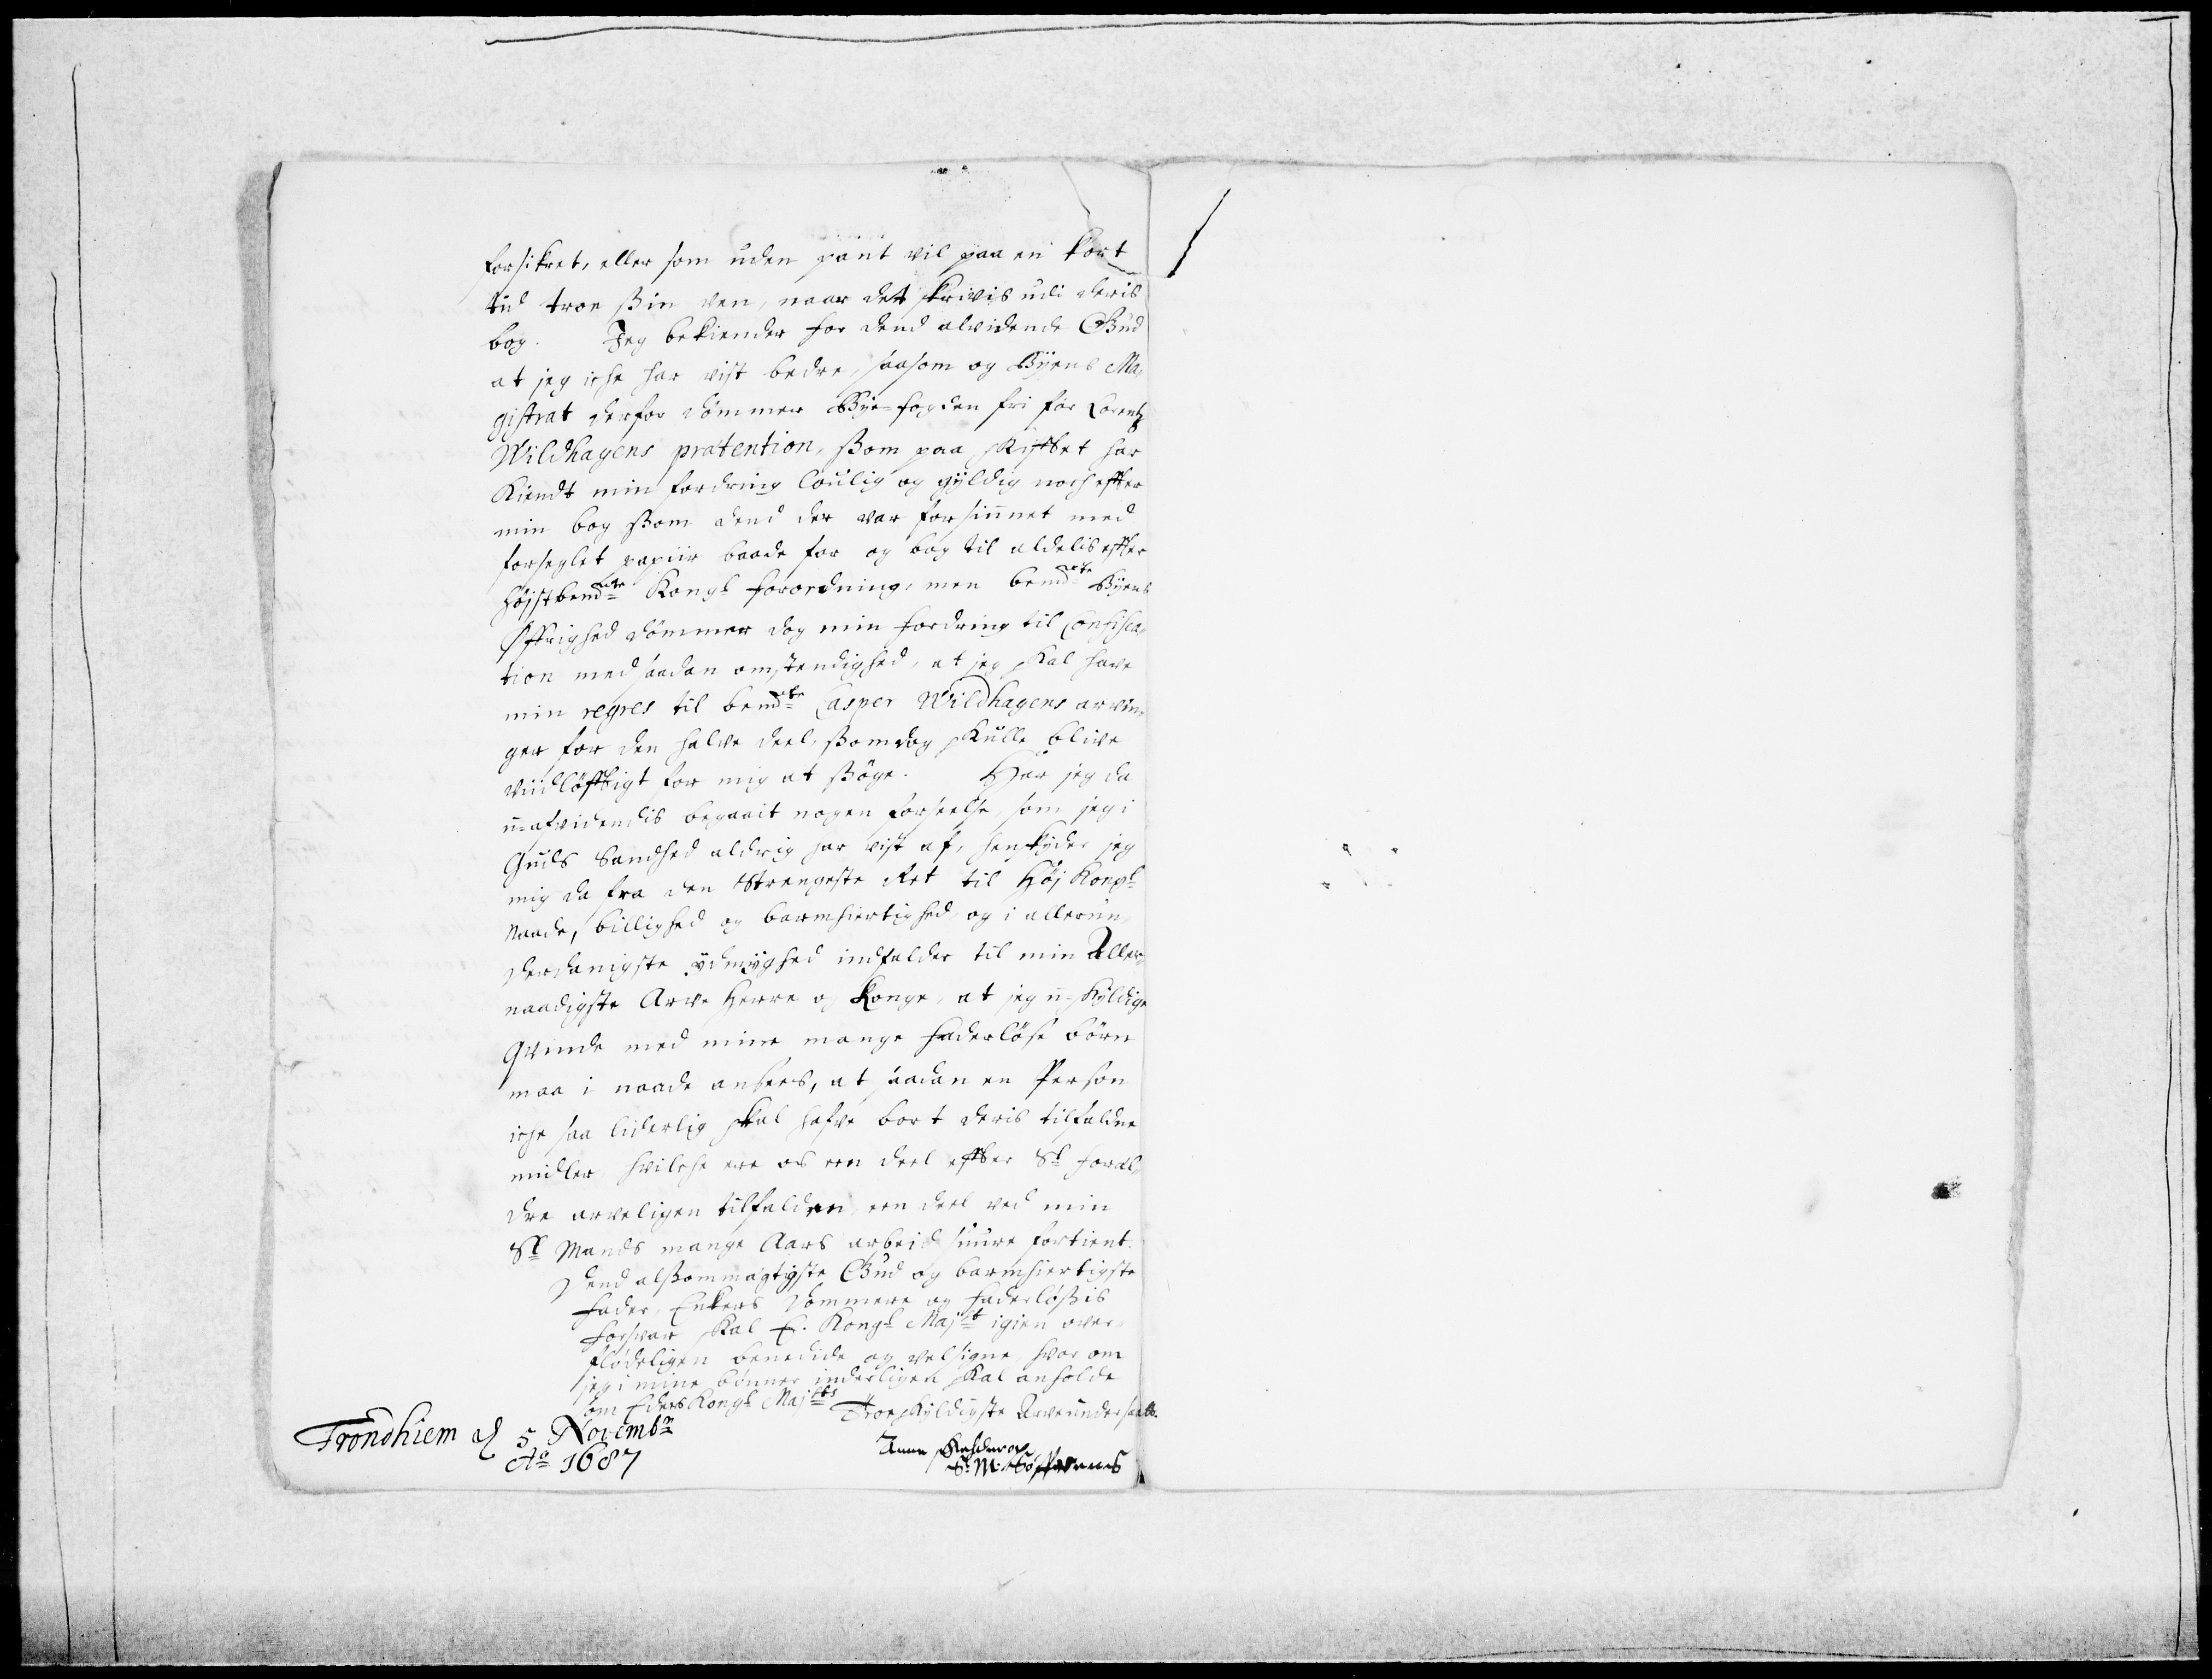 forsikret, eller som uden pant vil paa en kort
tid troe sin ven, naar det skrivis udi deris
bog. Jeg bekiender for dend alvidende Gud
at jeg iche har vist bedre, saasom og Byens Ma,
gistrat derfor dømmer Bye-fogden fri for Lorentz
Wildhagens prætention, som paa skiftet har
Kiendt min fordring loulig og gyldig noch effter
min bog som dend der var forsiunet med
forseglet papiir baade for og bag til aldelis effter
højstbemdte Kongl forordning, men bemdte Byens
Øffrighed dømmer dog min fordring til Confisca,
tion med saadan omstendighed, at jeg skal have
min regres til bemdte Casper Wildhagens arvin,
ger for den halve deel, som dog skulle blive
viidløfftigt for mig at søge. Har jeg da
u-afvidendis begaait nogen forseelse, som jeg i
Guds Sandhed aldrig har vist af, henskyder jeg
mig da fra den strengeste Ret til Høj Kongl
Naade, billighed og barmhiertighed, og i allerun,
derdanigste ydmyghed indfalder til min Aller,
naadigste Arve Herre og Konge, at jeg u-skyldige
Qvinde med mine mange faderløse børn
maa i naade ansees, at saadan en Person
iche saa liderlig skal hafve bort deris tilfaldne
midler hvilche ere os een deel effter Sl foræl,
dre arveligen tilfalden, een deel ved min
Sl Mands mange Aars arbeid suure fortient.
Dend alsommægtigste Gud og barmhiertigste
fader, Enkers Dommere og faderløsis
forsvar skal E. Kongl Majtt igien over,
flødeligen benedide og velsigne, hvor om
jeg i mine bønner inderligen skal anholde
som Eders Kongl Majtts
Troeskyldigste Arveundersaatt.
Trondhiem d 5 Novembr
Ao 1687
Anne
Sl: M: